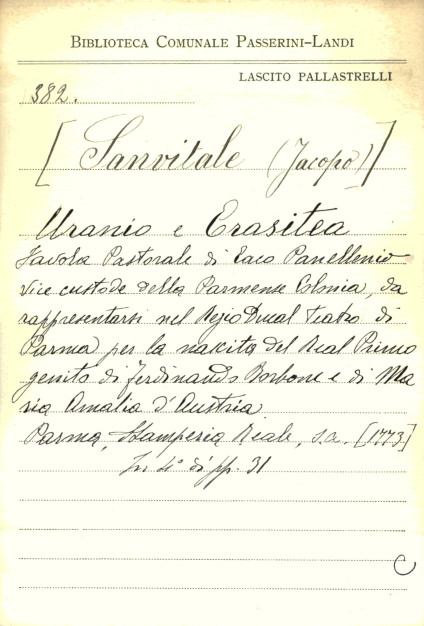 BIBLIOTECA COMUNALE PASSERINI-LANDI
LASCITO PALLASTRELLI
382.
[Sanvitale (Jacopo)]
Uranio e Erasitea
Favola Pastorale di Eaco Panellenio
Vice custode della Parmense Colonia, da
rappresentarsi nel Regio Ducal Teatro di
Parma per la nascita del Real Primo
genito di Ferdinando Borbone e di Ma
ria Amalia d'Austria
Parma, Stamperia Reale, s.a. [1773]
In 4° di pp. 31
C